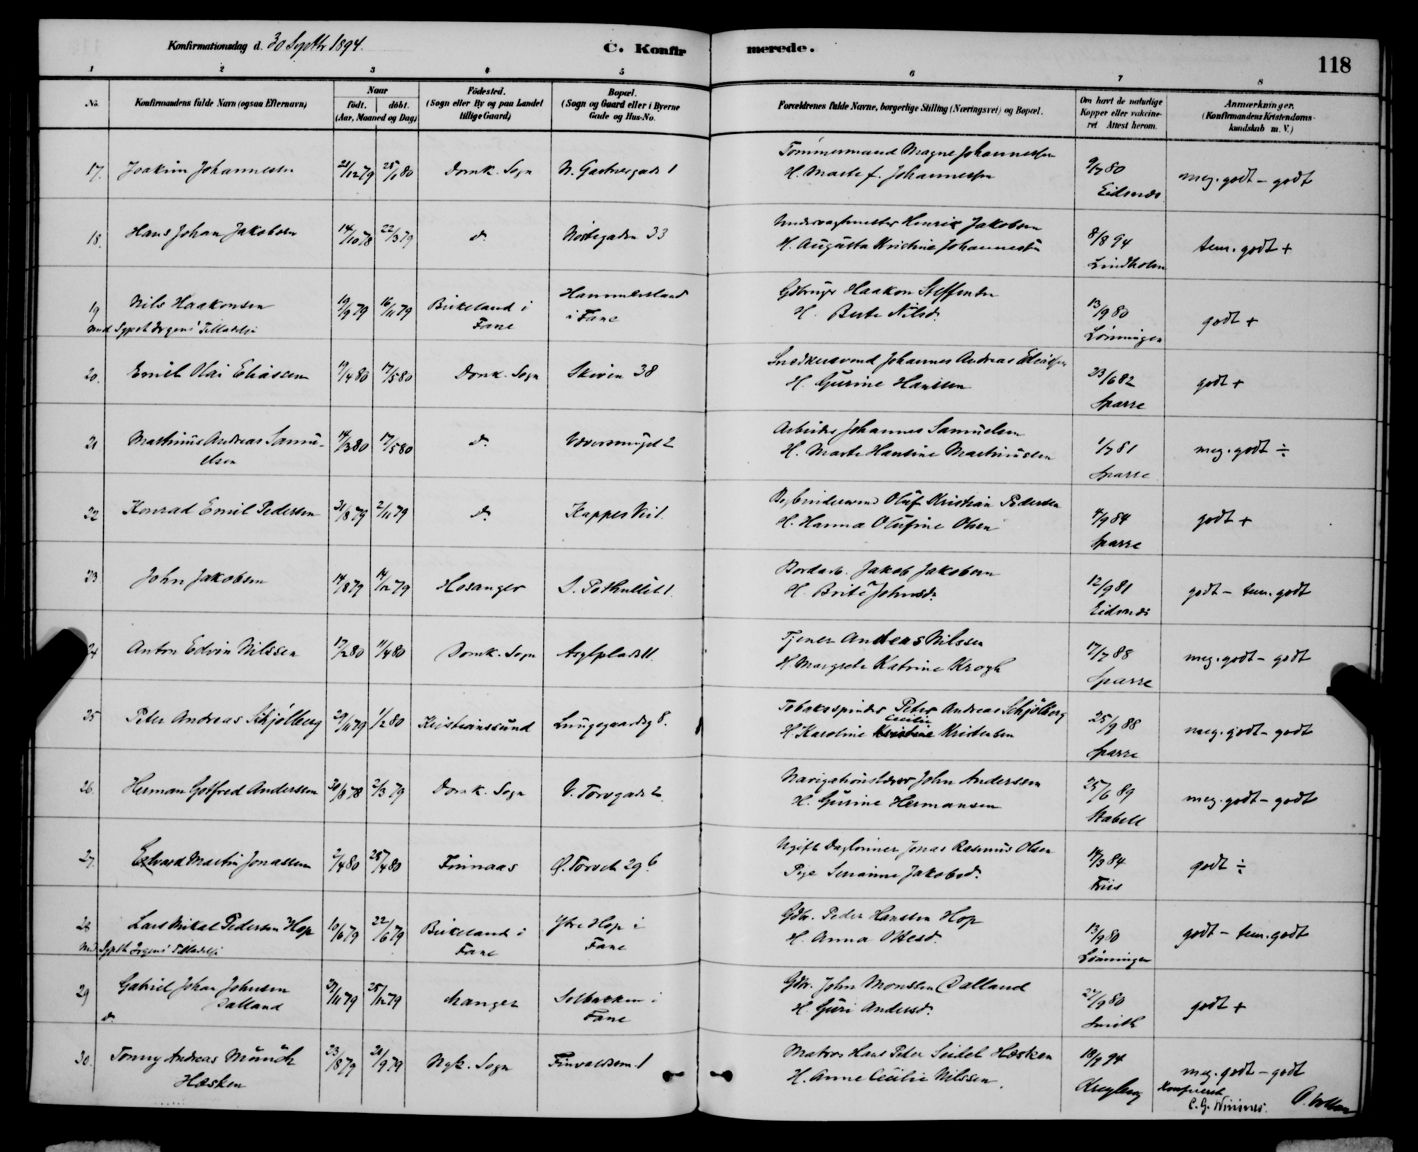 Konfirmationsdag d. 30 Septbr 1894.
C. Konfirmerede.
118
1 2 3 4 5 6 7 8
No.
Konfirmandens fulde Navn (ogsaa Efternavn)
Naar
født. døbt.
(Aar, Maaned og Dag)
Fødested.
(Sogn eller By og paa Landet tillige Gaard)
Bopæl.
(Sogn og Gaard eller i Byerne Gade og Hus-No.
Forældrenes fulde Navne, borgerlige Stilling (Næringsvei) og Bopæl.
Om havt de naturlige Kopper eller vakcineret Attest herom.
Anmærkninger.
(Konfirmandens Kristendomskundskab m. V.)
17. Joakim Johannesen 21/12 79 25/1 80 Domk. Sogn 1 Tømmermand Magne Johannessen
H. Marte f. Johannesen 9/7 80 Eidsnæs meg. godt – godt
18. Hans Johan Jakobsen 14/10 78 22/3 79 d. Nøstegaden 33 Henrik Jakobsen
H. Augusta Kristine 8/8 94 Lindholm tem. godt +
19 Nils Haakonsen 19/9 79 16/11 79 Birkeland i Fane Hammersland i Fane Gdbruger Haakon Steffensen
H. Berte Nilsd. 13/9 80 Lønningen godt +
med Tilladelse
20. Emil Olai Eliassen 11/4 80 17/5 80 Domk. Sogn Skiven 38 Snedkersvend Johannes Andreas Eliassen
H. Gurine Hansen 23/6 82 Sparre godt +
21 Mathinus Andreas Samuelsen 14/3 80 17/5 80 d. 2 Arbeider Johannes Samuelsen
H. Marte Hansine Martinussen 1/7 81 Sparre meg. godt ÷
22 Konrad Emil Pedersen 31/8 79 2/11 79 d. Oluf Kristian Pedersen
H. Hanna Olufine Olsen 4/9 84 Sparre godt +
23 John Jakobsen 14/8 79 14/12 79 Hosanger Bordarb. Jakob Jakobsen
H. Brite Johnsd. 12/9 81 Eidsnæs godt – tem. godt
24 Anton Edvin Nilssen 17/2 80 11/4 80 Domk. Sogn Tjener Andreas Nilssen
H. Margrete Katrine Krogh 17/7 88 Sparre meg. godt – godt
25 Peter Andreas Schjølberg 29/11 79 1/2 80 Kristianssund Lungegaardsg 8. Tobakspinder Peter Andreas Schjølberg
H. Karoline Cecilie Kristensen 25/9 88 Sparre meg. godt – godt
26. Herman Gotfred Anderssen 20/6 78 2/3 79 Domk. Sogn V. Torvgade 2 Navigationslærer John Anderssen
H. Gurine Hermansen 25/6 89 Stabell meg. godt – godt
27. Edvard Martin Jonassen 2/4 80 25/4 80 Finnaas Ø. Torvet 29 b. Ugift Dagløinner Jonas Rasmus Olsen
Pige Jakobsd. 14/9 84 Friis godt ÷
28 Lars Mikal Pedersen Hop 10/6 79 22/6 79 Birkeland i Fane Ytre Hop i Fane Gdbr. Peder Hanssen Hop
H. Anna Olsd. 13/9 80 Lønningen godt – tem. godt
Tilladelse
29 Gabriel Johan Johnsen Dalland 21/11 79 25/12 79 Manger Solbakken i Fane Gdbr. John Monssen Dalland
H. Guri Andersd. 27/9 80 Smith godt +
d.
30. Tonny Andreas Münch Hæsken 23/8 79 21/9 79 Nyk. Sogn 1 Matros Hans Peter Seitel Hæsken
H. Anne Cecilie Nilssen 18/9 94 meg. godt – godt
Konfereret